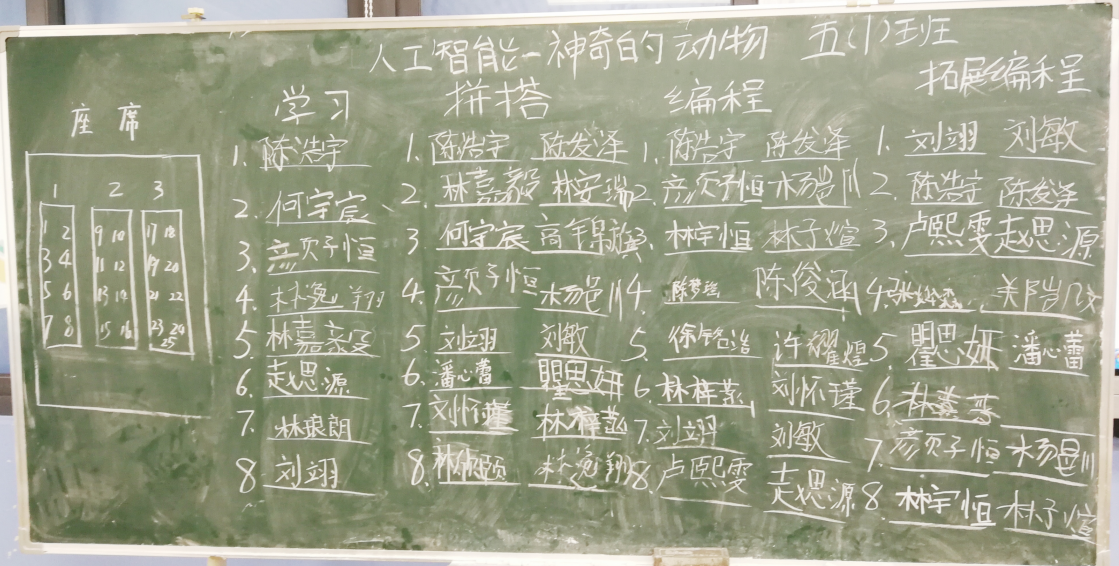 人工智能-神奇的动物 五(1)班
座席
1 2 3
1 2 9 10 17 18
3 4 11 12 19 20
5 6 13 14 21 22
7 8 15 16 23 24
25
学习
1. 陈浩宇
2. 何宇宸
3. 彦页子恒
4. 林逸翔
5. 林嘉毅
6. 赵思源
7. 林琅朗
8. 刘翊
拼搭
1. 陈浩宇 陈发泽
2. 林嘉毅 林安瑞
3 何宇宸 高锦旗
4. 彦页子恒 杨邑川
5 刘翊 刘敏
6. 潘心蕾 瞿思妍
7. 刘怀瑾 林梓菡
8. 林佩颐 林逸翔
编程
1. 陈浩宇 陈发泽
2. 彦页子恒 杨邑川
3. 林宇恒 林子煊
4 陈梦瑶 陈俊涵
5. 徐铭浩 许耀煌
6. 林梓菡 刘怀瑾
7. 刘翊 刘敏
8. 卢熙雯 赵思源
拓展编程
1. 刘翊 刘敏
2. 陈浩宇 陈发泽
3. 卢熙雯 赵思源
4.
5 瞿思妍 潘心蕾
6.
7. 彦页子恒 杨邑川
8 林宇恒 林子煊